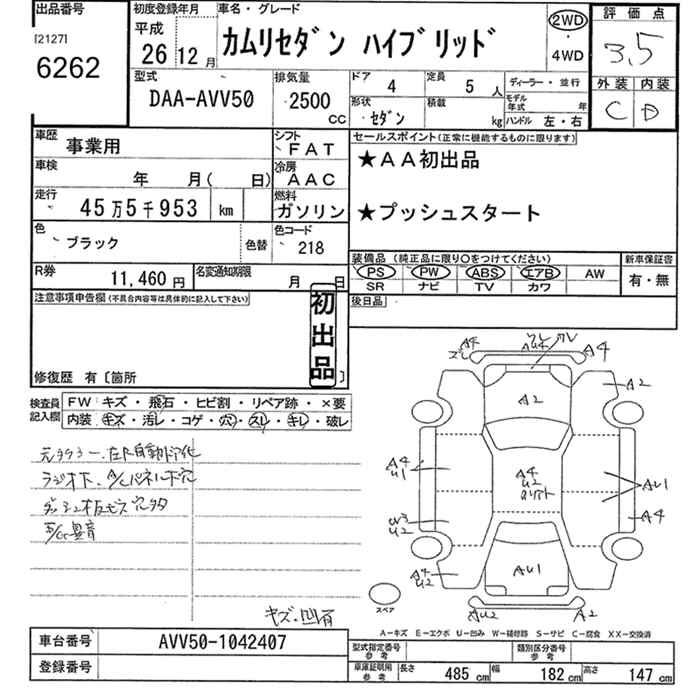 出品番号
[2127]
6262
初度登録年月
平成
26 12月
車名・グレード
カムリセダン ハイブリッド
2WD
・
4WD
評価点
3.5
外装 内装
C D
型式
DAA-AVV50
排気量
2500
CC
ドア
4
定員
5 人
ディーラー・並行
形状
セダン
積載
kg
モデル年式 年
ハンドル 左・右
車歴
事業用
シフト
FAT
車検
年 月( 日)
冷房
AAC
走行
45万5千953 km
燃料
ガソリン
色
ブラック
色替
色コード
218
R券
11,460円
名変通知期限
月 日
セールスポイント(正常に機能するものに限ります)
★AA初出品
★プッシュスタート
装備品 (純正品に限り○をつけてください)
PS PW ABS エアB AW
SR ナビ TV カワ
新車保証書
有・無
後日品
注意事項申告欄(不具合内容等は具体的に記入して下さい)
初出品
修復歴 有〔箇所 〕
検査員
記入欄
FW キズ・飛石・ヒビ割・リペア跡・×要
内装 キズ・汚レ・コゲ・穴・スレ・キレ・破レ
元タクシー、左R自動ドア化
ラジオ下、A/Cパネル下穴
キズ・凹有
A4
A4
A2
A2
A4
U1
A4
U2
AU1
A4
W3
U2
A4
U2
AU1
AU2
A2
スペア
A-キズ E-エクボ U-凹み W-補修跡 S-サビ C-腐食 XX-交換済
車台番号
AVV50-1042407
登録番号
型式指定番号
参考
類別区分番号
参考
車庫証明用
参考
長さ 485cm 幅 182cm 高さ 147cm